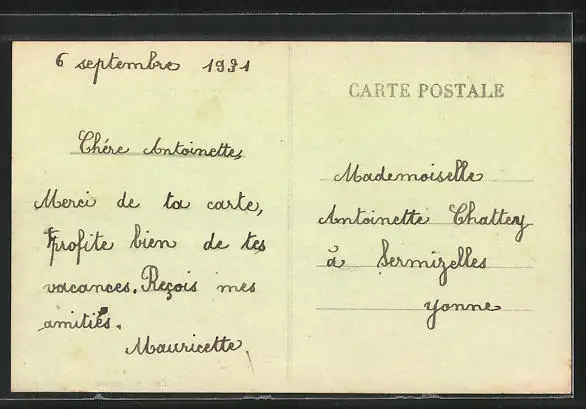 6 septembre 1931
Chére Antoinette,
Merci de ta carte,
Profite bien de tes
vacances. Reçois mes
amitiés.
Mauricette,
CARTE POSTALE
Mademoiselle
Antoinette Chattey
à Sermizelles
Yonne